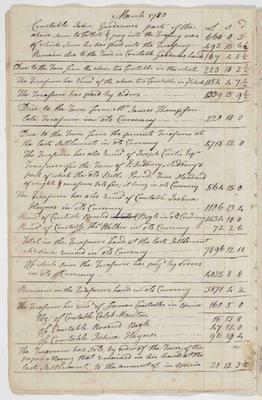 March 1783
Constable John Gardeners part of the
above sum to Collect & pay into the Treasury was 660 0 3
of which sum he has paid into the Treasury 492 15 6
Remains due to the Town in Constable Gardeners hands 167 4 8
Due to the Town from the above two Constables in the whole 223 10 2
The Treasurer has Recd of the above two Constables in 1154 4 7
The Treasurer has paid by orders 1339 15 9
Due to the Town from Mr James Thompson
late Treasurer in old Currency 220 10 0
Due to the Town from the present Treasurer at
the last Settlement in old Currency 4718 12 0
The Treasurer has also Recd of Joseph Curtis Esqr
Treasurer for the Town of Sudbury
part of what the old
of weights & measures in old Currency 564 15 0
The Treasurer has also Recd of Constable Joshua
Haynes in old Currency 1186 13 4
Recd of Constable Hopestill in old Currency 1434 10 0
Recd of Constable Walker in old Currency 72 2 6
Total in the Treasurers hands at the last Settlement
and since Received in old Currency 7896 12 10
Of which sum the Treasurer has paid by orders
in old Currency 4025 8 8
Remains in the Treasurers hands in old Currency 3871 4 2
The Treasurer has Recd of former Constables in specie 160 5 0
Viz. of Constable Caleb Moulton 16 13 0
Of Constable 47 12 0
Of Constable Joshua Haynes 96 19 4
The Treasurer has sold by order of the Town of the
paper Money that remained in his hands at the
last Settlement to the amount of in specie 21 12 3